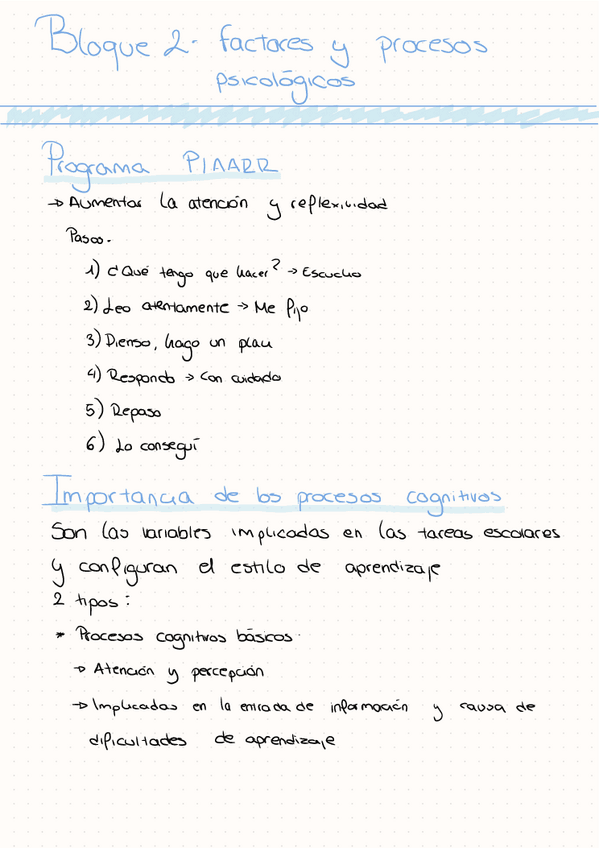 Bloque 2- factores y procesos
psicológicos
Programa PIAARR
→ Aumentar la atención y reflexividad
Pasos-
1) ¿Qué tengo que hacer? → Escucho
2) Leo atentamente → Me fijo
3) Pienso, hago un plan
4) Respondo → Con cuidado
5) Repaso
6) Lo conseguí
Importancia de los procesos cognitivos
Son las variables implicadas en las tareas escolares
y configuran el estilo de aprendizaje
2 tipos:
* Procesos cognitivos básicos
→ Atención y percepción
→ Implicadas en la entrada de información y causa de
dificultades de aprendizaje